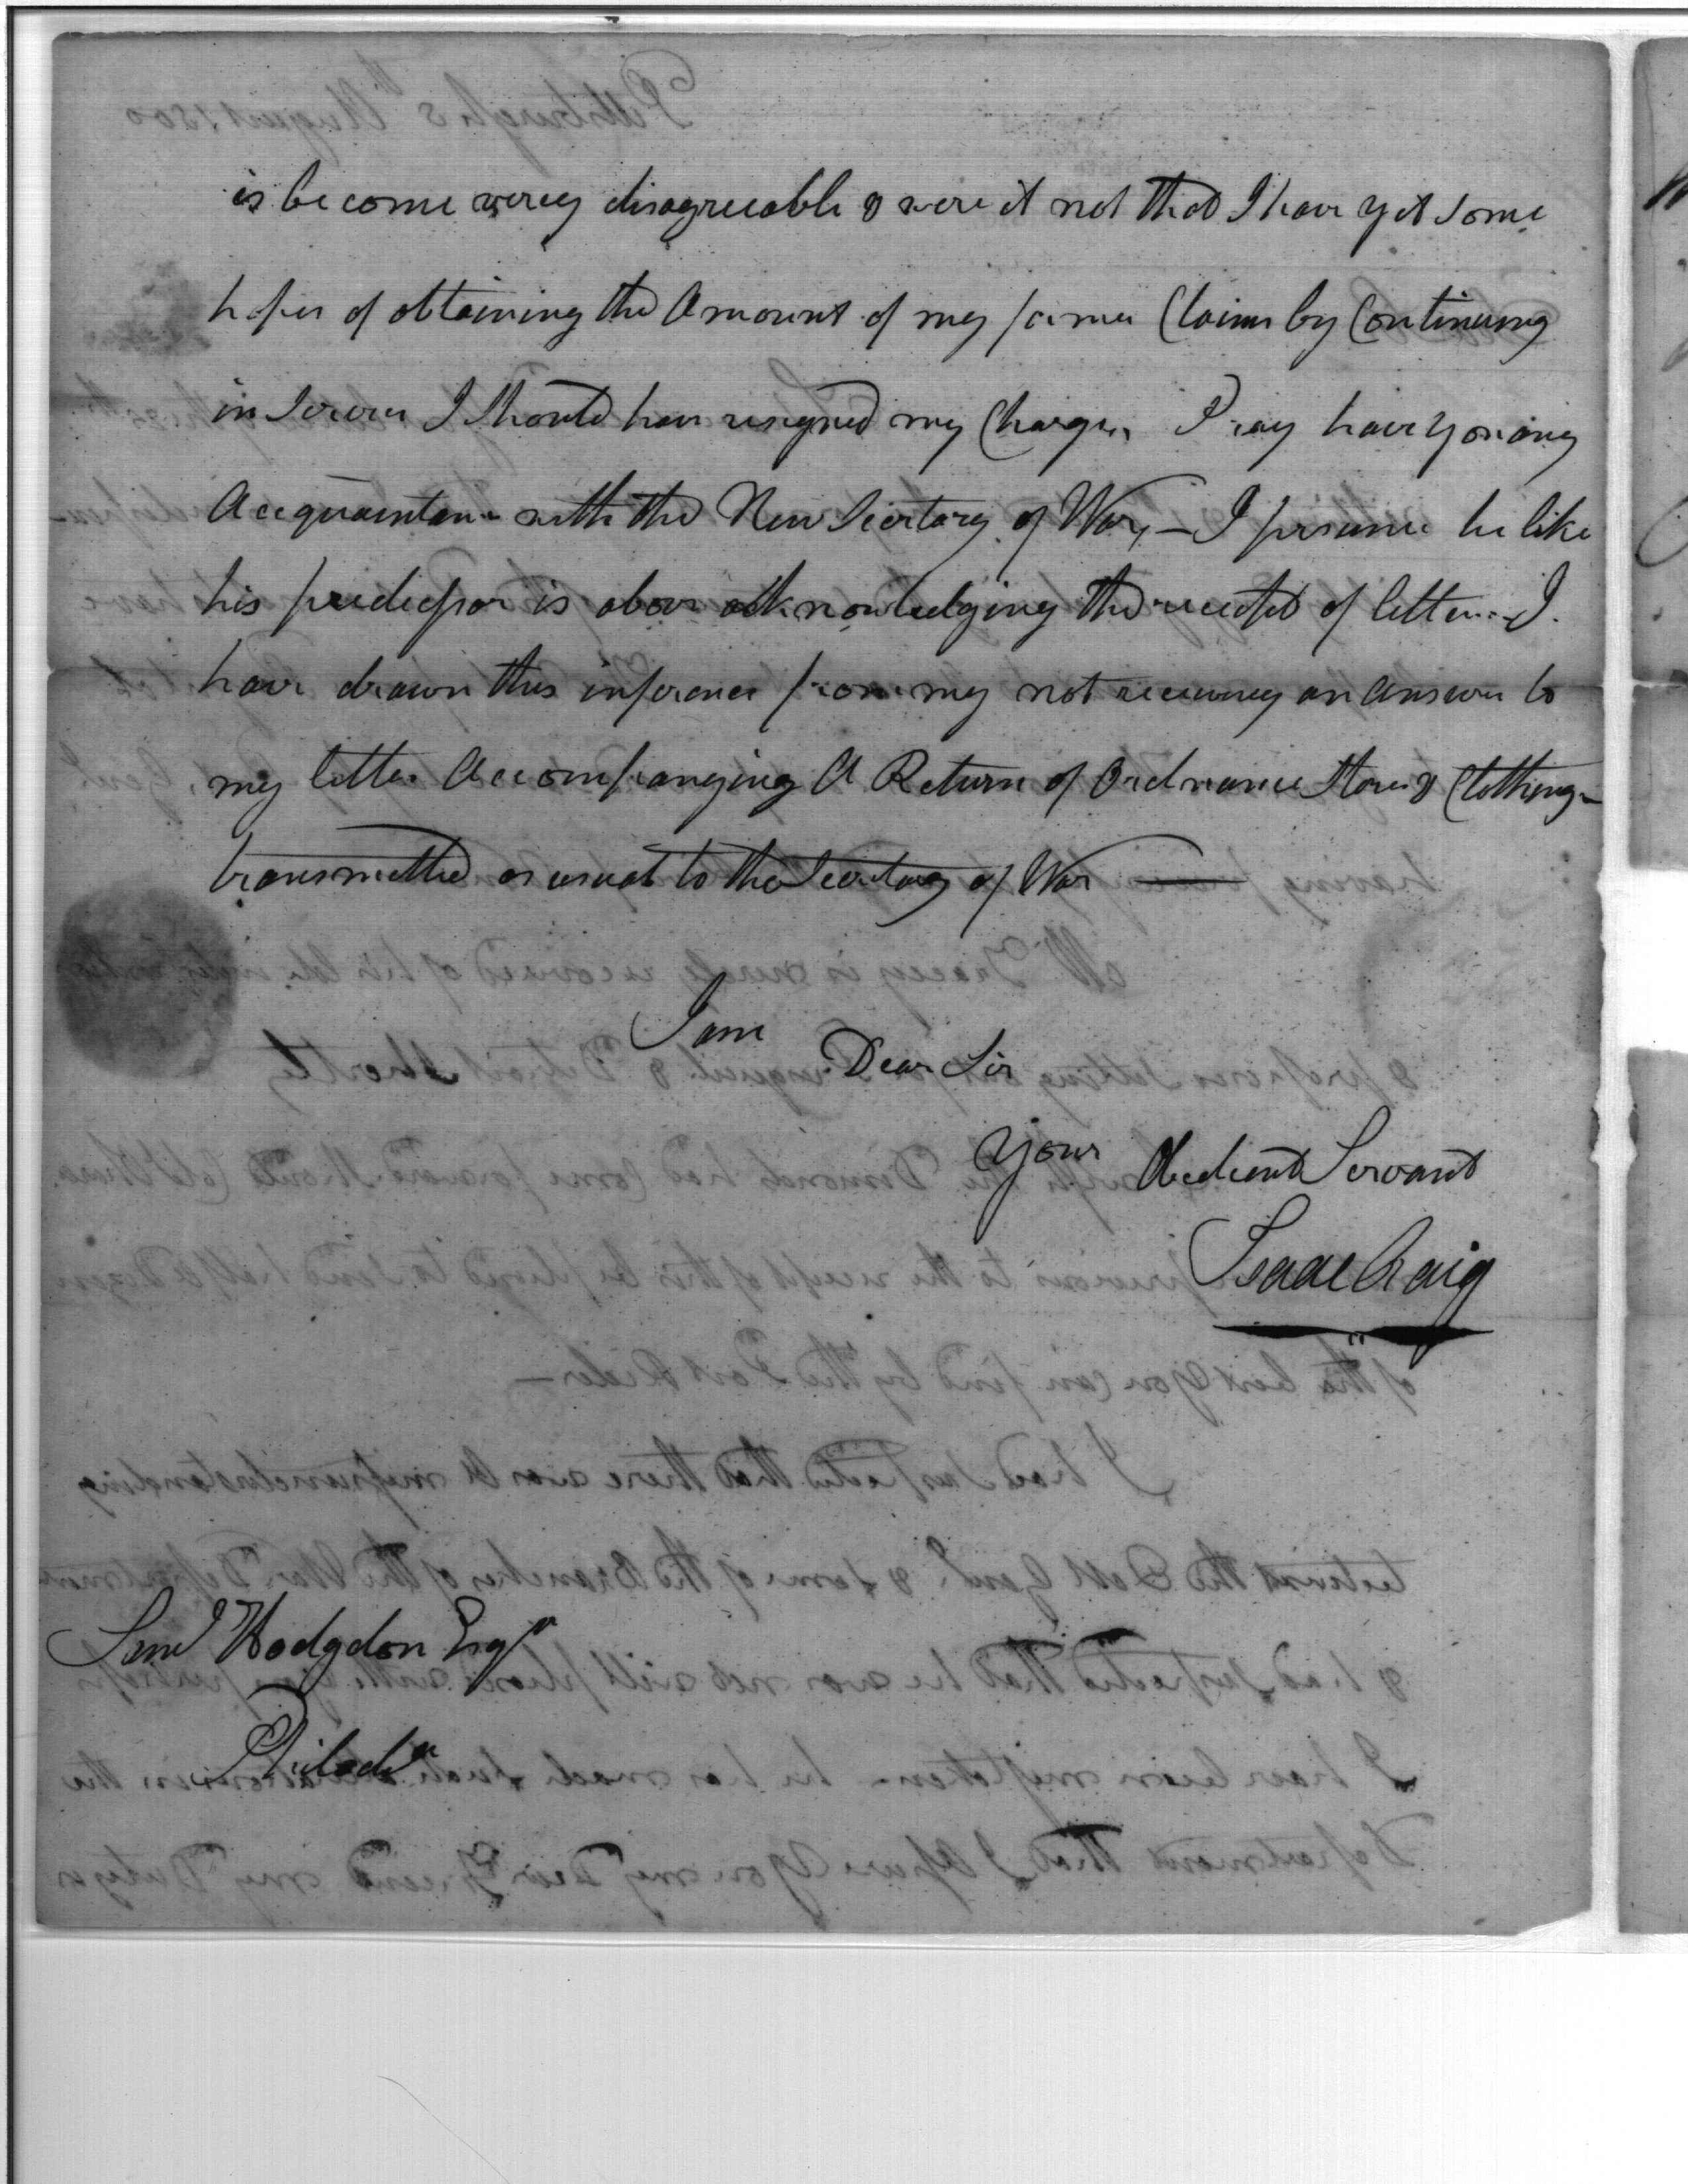 is become verey disagreeable & were it not that I have yet some
hopes of obtaining the Amount of my former Claims by Continuing
in Service I Should have resigned my Charge,, Pray have you any
Acquaintance with the New Secretary of War, – I presume he like
his predicessor is above acknowledging the receipt of letters – I
have drawn this inference from my not receiving an answer to
my letter Accompanying A Return of Ordnance Stores & Clothing –
transmitted as usual to the Secretary of War —
I am
Dear Sir
Your Obedient Servant
Isaac Craig
Saml Hodgdon Esqr
Philada